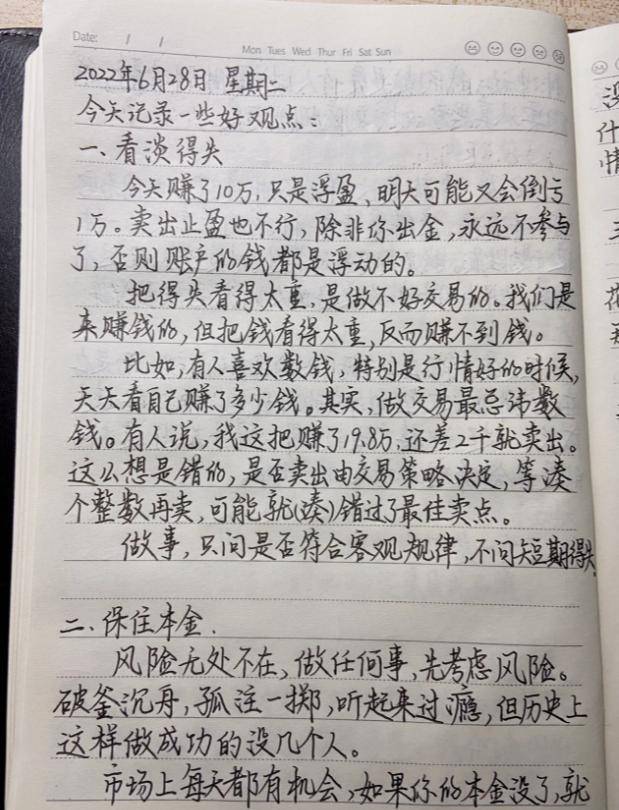 Date: / /
Mon Tues Wed Thur Fri Sat Sun
2022年6月28日 星期二
今天记录一些好观点：
一、看淡得失
今天赚了10万，只是浮盈，明天可能又会倒亏
1万。卖出止盈也不行，除非你出金，永远不参与
了，否则账户的钱都是浮动的。
把得失看得太重，是做不好交易的。我们是
来赚钱的，但把钱看得太重，反而赚不到钱。
比如，有人喜欢数钱，特别是行情好的时候，
天天看自己赚了多少钱。其实，做交易最忌讳数
钱。有人说，我这把赚了19.8万，还差2千就卖出。
这么想是错的，是否卖出由交易策略决定，等凑
个整数再卖，可能就(凑)错过了最佳卖点。
做事，只问是否符合客观规律，不问短期得失
二、保住本金.
风险无处不在，做任何事，先考虑风险。
破釜沉舟，孤注一掷，听起来过瘾，但历史上
这样做成功的没几个人。
市场上每天都有机会，如果你的本金没了，就
没
什
情
三